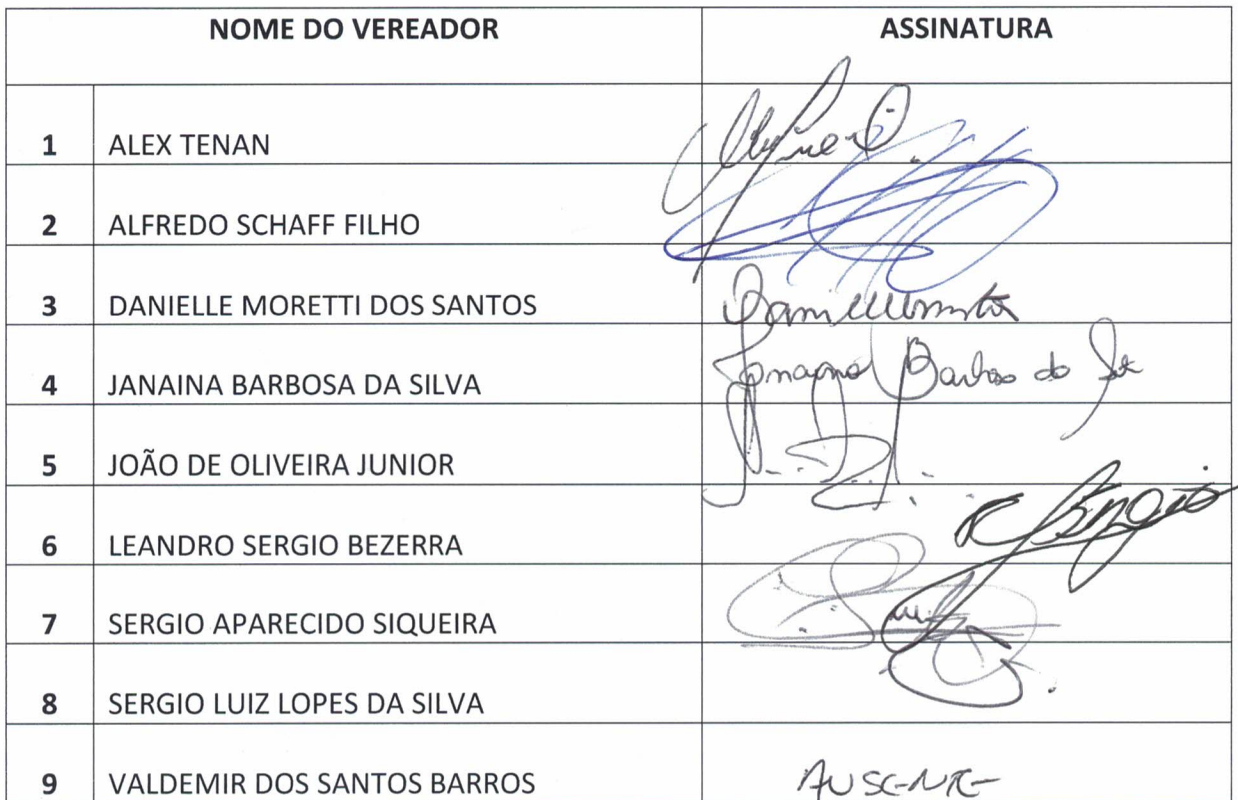 NOME DO VEREADOR ASSINATURA
1 ALEX TENAN
2 ALFREDO SCHAFF FILHO
3 DANIELLE MORETTI DOS SANTOS
4 JANAINA BARBOSA DA SILVA
5 JOÃO DE OLIVEIRA JUNIOR
6 LEANDRO SERGIO BEZERRA
7 SERGIO APARECIDO SIQUEIRA
8 SERGIO LUIZ LOPES DA SILVA
9 VALDEMIR DOS SANTOS BARROS AUSENTE